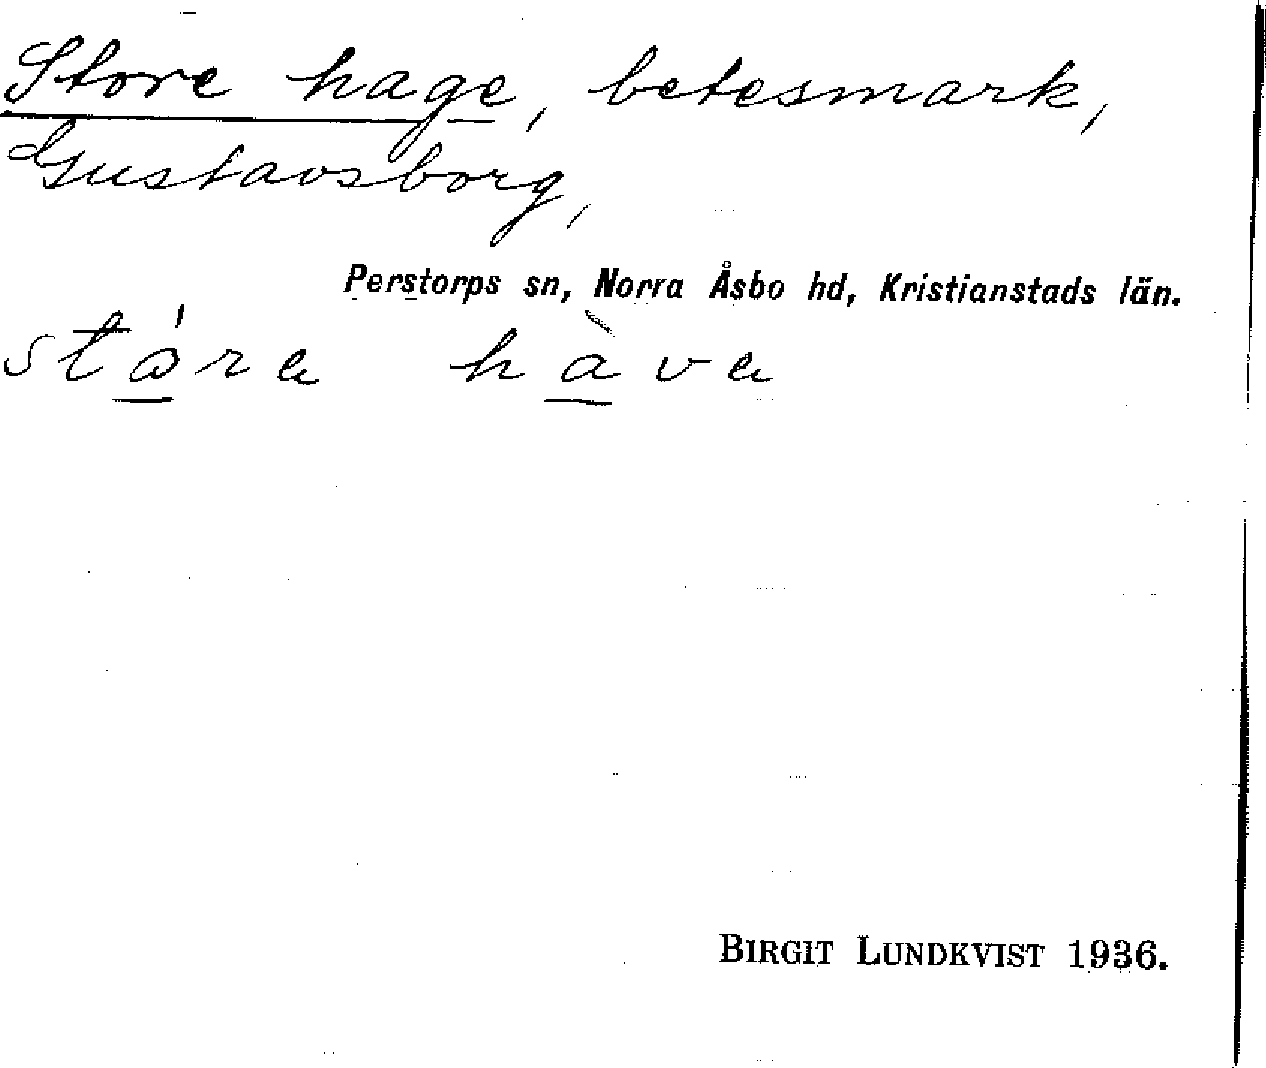 Store hage, betesmark,
Gustavsborg,
Perstorps sn, Norra Åsbo hd, Kristianstads län.
stóra hàva
BIRGIT LUNDKVIST 1936.